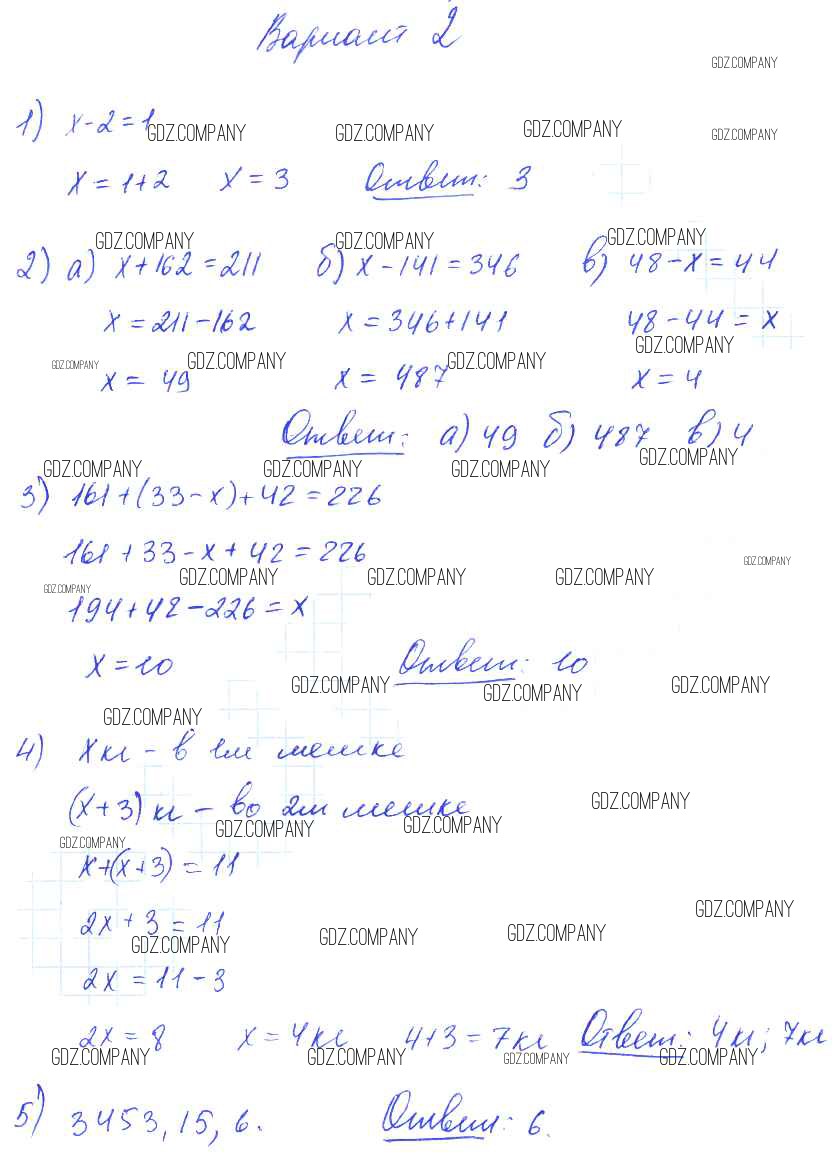 Вариант 2
GDZ.COMPANY
1) x-2=1
GDZ.COMPANY GDZ.COMPANY GDZ.COMPANY GDZ.COMPANY
x=1+2 x=3 Ответ: 3
GDZ.COMPANY GDZ.COMPANY GDZ.COMPANY
2) а) x+162=211 б) x-141=346 в) 48-x=44
x=211-162 x=346+141 48-44=x
GDZ.COMPANY GDZ.COMPANY GDZ.COMPANY GDZ.COMPANY
x=49 x=487 x=4
Ответ: а) 49 б) 487 в) 4
GDZ.COMPANY GDZ.COMPANY GDZ.COMPANY GDZ.COMPANY
3) 161+(33-x)+42=226
161+33-x+42=226
GDZ.COMPANY GDZ.COMPANY GDZ.COMPANY GDZ.COMPANY GDZ.COMPANY
194+42-226=x
x=10 Ответ: 10
GDZ.COMPANY GDZ.COMPANY GDZ.COMPANY
GDZ.COMPANY
4) x кг - в 1м мешке
(x+3) кг - во 2м мешке
GDZ.COMPANY GDZ.COMPANY GDZ.COMPANY GDZ.COMPANY
x+(x+3)=11
2x+3=11
GDZ.COMPANY GDZ.COMPANY GDZ.COMPANY GDZ.COMPANY
2x=11-3
2x=8 x=4кг 4+3=7кг Ответ: 4кг; 7кг
GDZ.COMPANY GDZ.COMPANY GDZ.COMPANY GDZ.COMPANY
5) 3453, 15, 6. Ответ: 6.